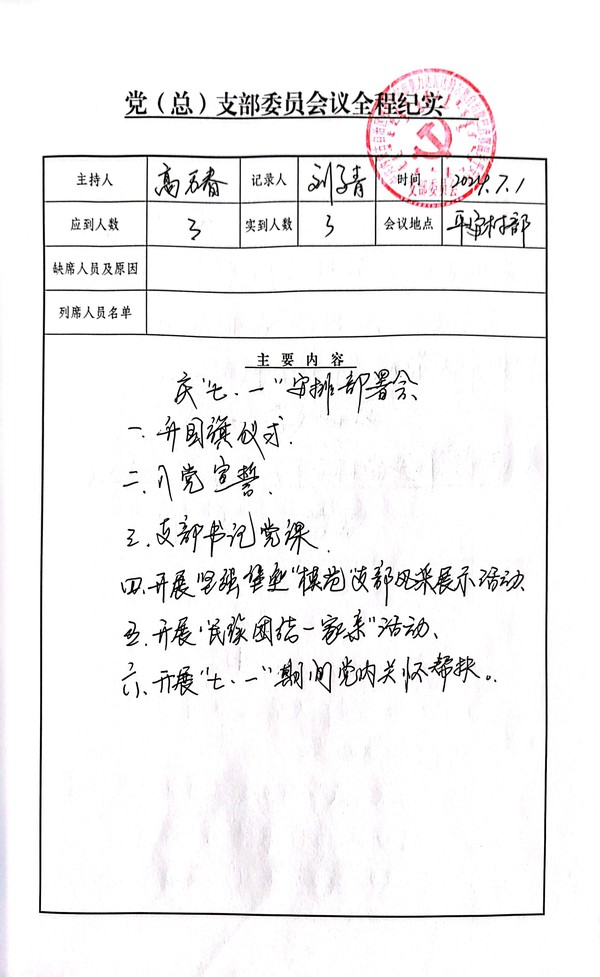 党（总）支部委员会议全程纪实
主持人 高万春 记录人 刘子青 时间 2024.7.1
应到人数 3 实到人数 3 会议地点 村部
缺席人员及原因
列席人员名单
主要内容
庆“七.一”安排部署会
一.升国旗仪式.
二.入党宣誓.
三.支部书记党课.
四.开展“坚强堡垒”“模范”支部风采展示活动.
五.开展“民族团结一家亲”活动.
六.开展“七.一”期间党内关怀帮扶。
支部委员会